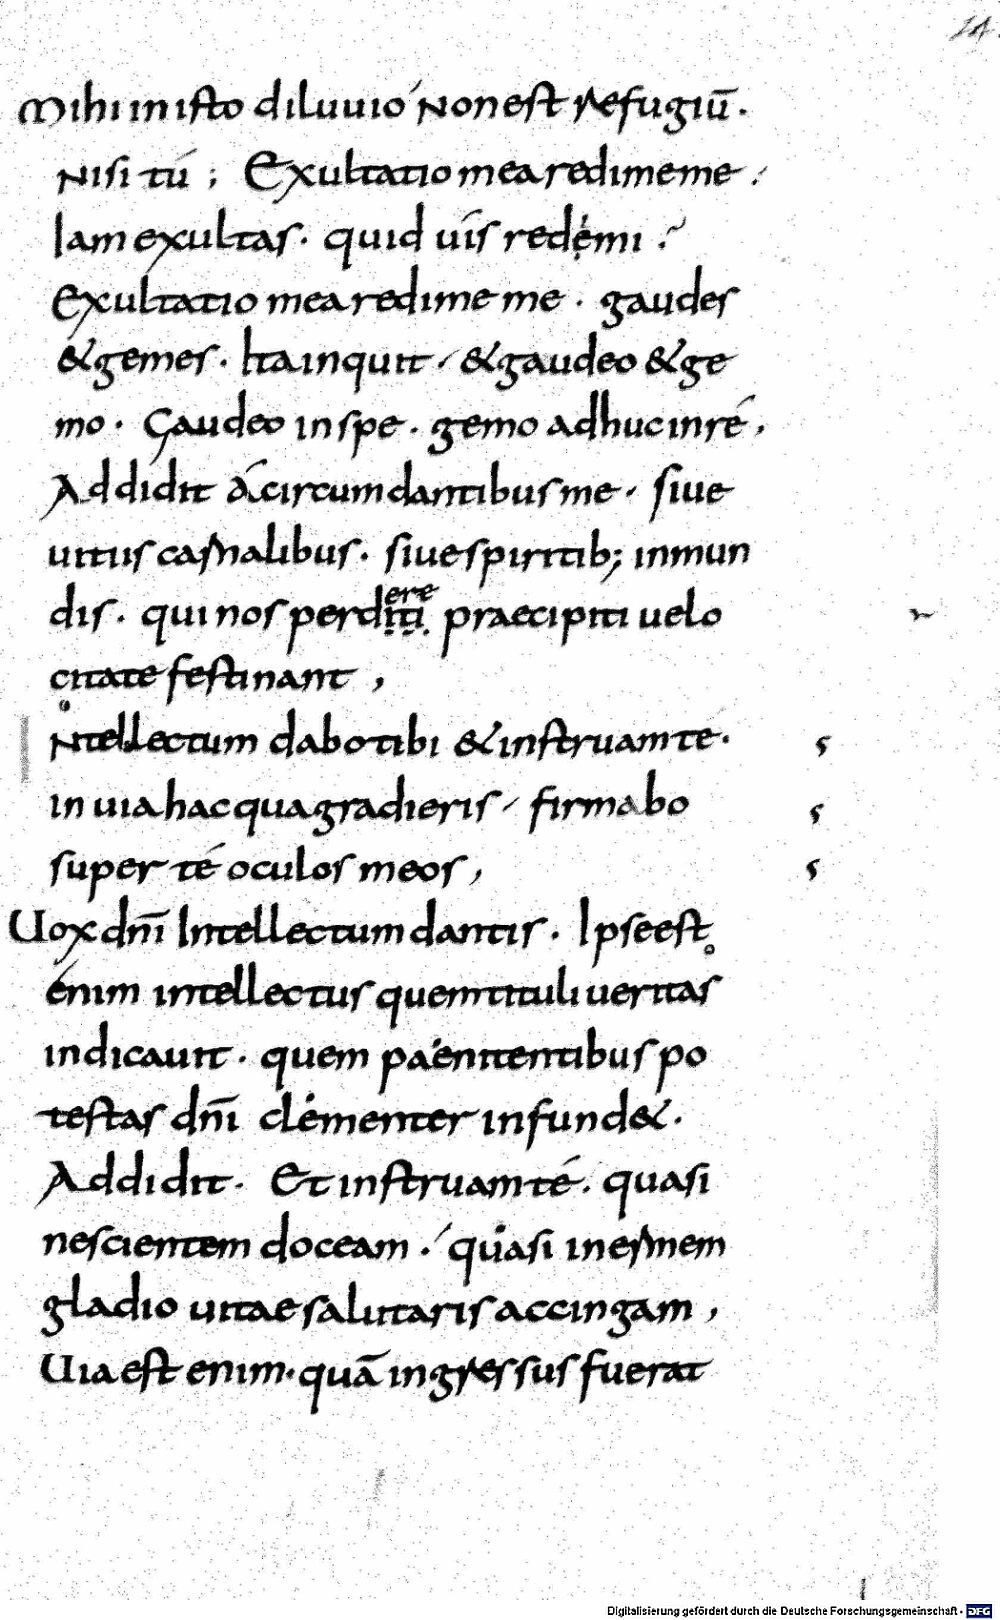 24.
Mihi in isto diluuio non est refugiū.
nisi tú ; Exultatio mea redime me .
Iam exultas . quid uís redemi ?
Exultatio mea redime me . gaudes
& gemes . Ita inquit / & gaudeo & ge
mo . Gaudeo in spe . gemo adhuc in ré ,
Addidit á circumdantibus me . siue
uitiis carnalibus . siue spiritib; inmun
dis . qui nos perditi ere praecipiti uelo
citate festinant ,
Ntellectum dabo tibi & instruam te .
in uia hac qua gradieris / firmabo
super té oculos meos ,
Uox dn̄i Intellectum dantis . Ipse est
énim intellectus quem tituli ueritas
indicauit . quem paenitentibus po
testas dn̄i clementer infund& .
Addidit . Et instruam té . quasi
nescientem doceam . quasi inermem
gladio uitae salutaris accingam ,
Uia est enim . quā ingressus fuerat
Digitalisierung gefördert durch die Deutsche Forschungsgemeinschaft - DFG